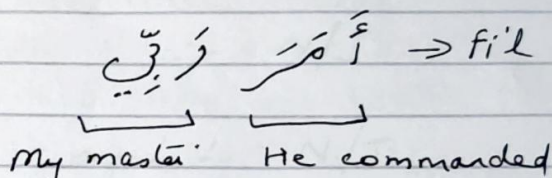 أَمَرَ رَبِّي → fi'l
My master He commanded